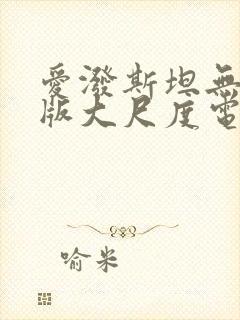 愛潑斯坦無
版大尺度電
喻米